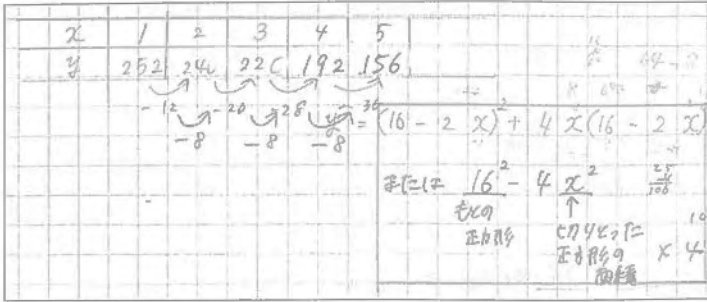 x 1 2 3 4 5
y 252 240 220 192 156
-12 -20 -28 -36
-8 -8 -8
y = (16 - 2x)² + 4x(16 - 2x)
または 16² - 4x²
もとの
正方形
切りとった
正方形の
面積
× 4